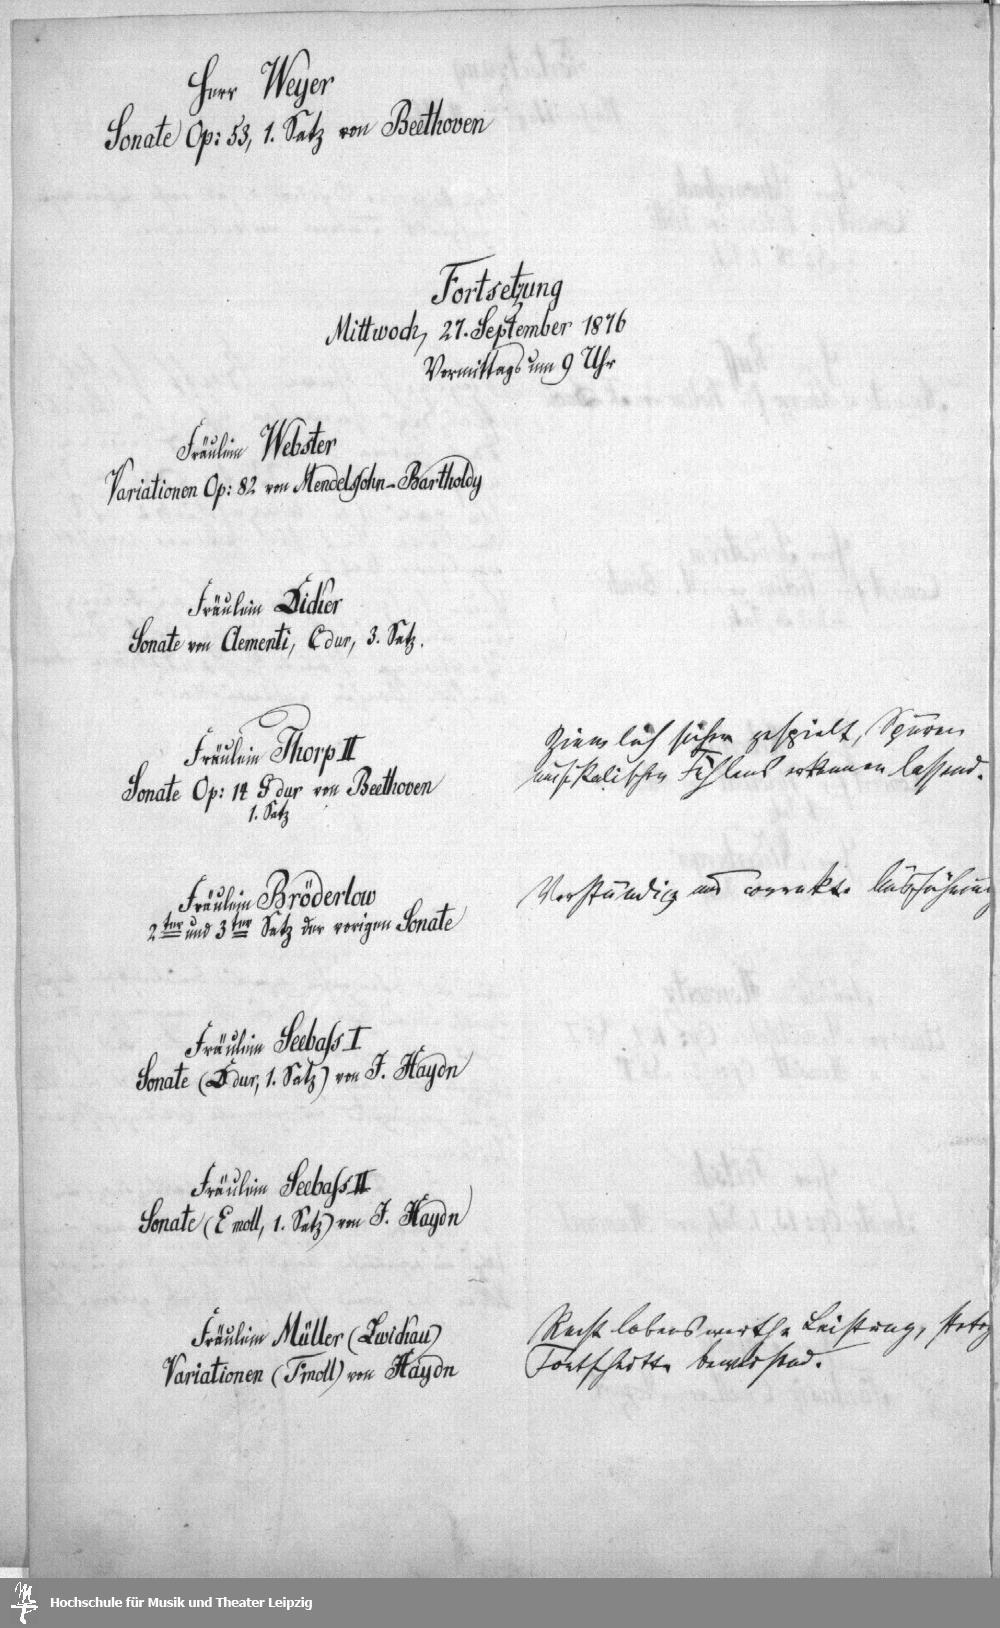 Herr Weyer
Sonate Op: 53, 1. Satz von Beethoven
Fortsetzung
Mittwoch, 27. September 1876
Vormittags um 9 Uhr
Fräulein Webster
Variationen Op: 82 von Mendelsohn-Bartholdy
Fräulein Didier
Sonate von Clementi, C dur, 3. Satz.
Fräulein Thorp II
Sonate Op: 14 G dur von Beethoven
1. Satz
Ziemlich sicher gespielt, Spuren
musikalischen Fühlens erkennen lassend.
Fräulein Bröderlow
2ter und 3ter Satz der vorigen Sonate
Verständig und correkte Ausführung
Fräulein Seebaß I
Sonate (D dur, 1. Satz) von J. Haydn
Fräulein Seebaß II
Sonate (E moll, 1. Satz) von J. Haydn
Fräulein Müller (Zwickau)
Variationen (F moll) von Haydn
Recht lobenswerthe Leistung, stetig
Fortschritte beweisend.
Hochschule für Musik und Theater Leipzig